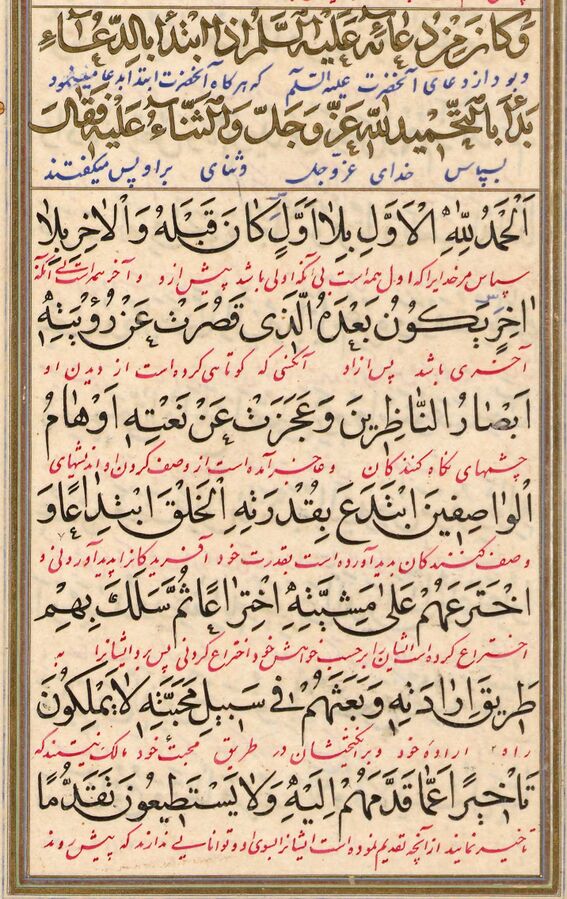 وَكَانَ مِنْ دُعَائِهِ عَلَيْهِ السَّلَمُ اِذَا ابْتَدَأَ بِالدُّعَاءِ
و بود از دعای آنحضرت علیه السلم که هرگاه آنحضرت ابتدا بدعا مینمود
بَدَأَ بِالتَّحْمِيدِ لِلّهِ عَزَّ وَجَلَّ وَالثَّنَاءِ عَلَيْهِ فَقَالَ
بسپاس خدای عزوجل وثنای براو پس میگفتند
اَلْحَمْدُ لِلّهِ الْاَوَّلِ بِلاَ اَوَّلٍ كَانَ قَبْلَهُ وَالْاخِرِ بِلاَ
سپاس مر خدایرا که اول همه است بی آنکه اولی باشد پیش ازو و آخر همه است بی آنکه
اخِرٍ يَكُونُ بَعْدَهُ الَّذى قَصُرَتْ عَنْ رُؤْيَتِهِ
آخری باشد پس ازاو آنکسی که کوتاهی کرده است از دیدن او
اَبْصَارُ النَّاظِرِينَ وَعَجَزَتْ عَنْ نَعْتِهِ اَوْهَامُ
چشمهای نگاه کنندگان و عاجز آمده است از وصف کردن او اندیشهای
الْوَاصِفِينَ ابْتَدَعَ بِقُدْرَتِهِ الْخَلْقَ ابْتِدَاعًا وَ
وصف کنندگان پدید آورده است بقدرت خود آفریدگانرا پدید آوردنی و
اخْتَرَعَهُمْ عَلىٰ مَشِيَّتِهِ اخْتِرَاعًا ثُمَّ سَلَكَ بِهِمْ
اختراع کرده است ایشانرا برحسب خواهش خود اختراع کردنی پس برد ایشانرا به
طَرِيقَ اِرَادَتِهِ وَبَعَثَهُمْ فى سَبِيلِ مَحَبَّتِهِ لاَ يَمْلِكُونَ
راه اراده خود و برانگیختشان در طریق محبت خود مالک نیستند که
تَاْخِيرًا عَمَّا قَدَّمَهُمْ اِلَيْهِ وَلاَ يَسْتَطِيعُونَ تَقَدُّمًا
تاخیر نمایند از آنچه تقدیم نموده است ایشانرا بسوی او و توانایی ندارند که پیش روند